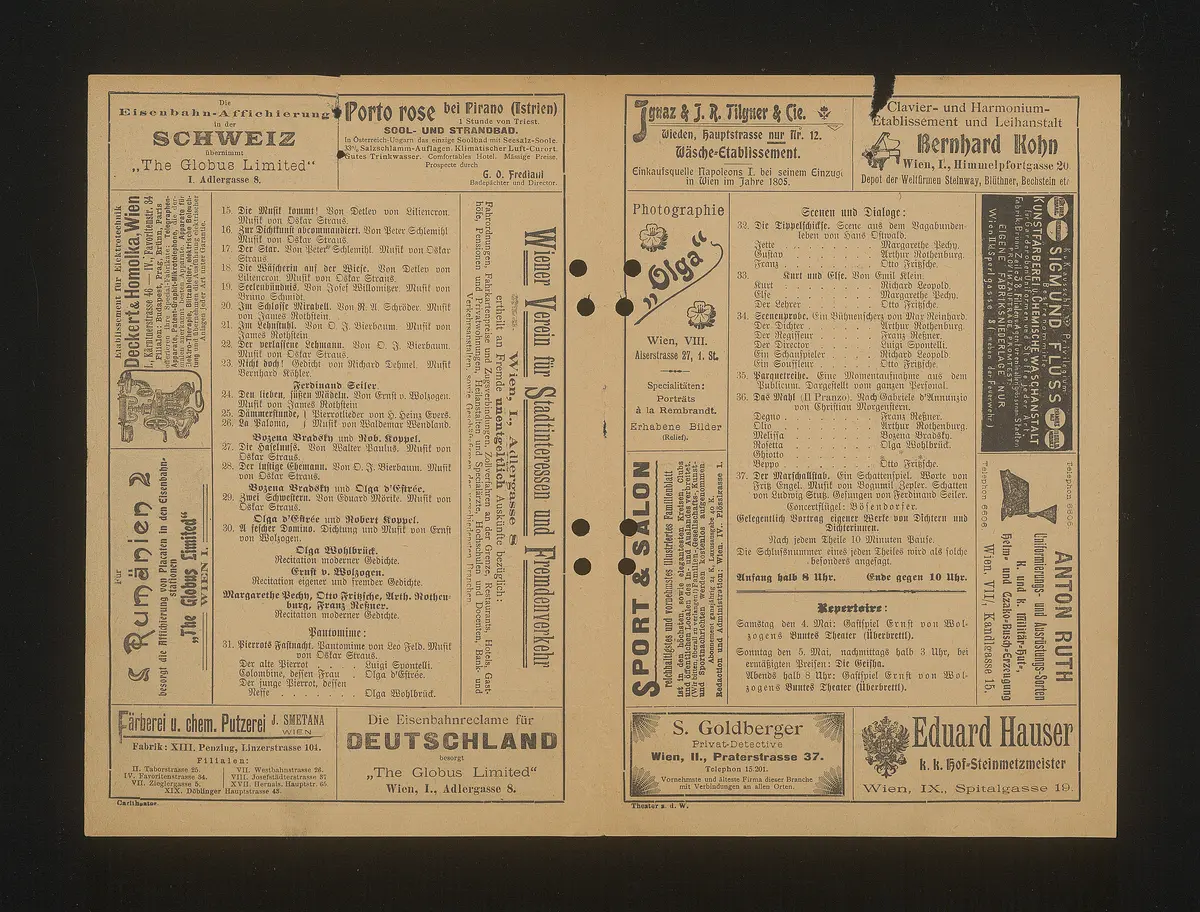 Die
Eisenbahn-Affichierung
in der
SCHWEIZ
übernimmt
„The Globus Limited“
I. Adlergasse 8.
Porto rose bei Pirano (Istrien)
1 Stunde von Triest.
SOOL- UND STRANDBAD.
In Österreich-Ungarn das einzige Soolbad mit Seesalz-Soole.
33% Salzschlamm-Auflagen. Klimatischer Luft-Curort.
Gutes Trinkwasser. Comfortables Hotel. Mässige Preise.
Prospecte durch
G. O. Frediani
Badepächter und Director.
Etablissement für Elektrotechnik
Deckert & Homolka, Wien
I., Kärntnerstrasse 46 — IV., Favoritenstr. 34
Filialen: Budapest, Prag, Brünn, Paris
Für
Rumänien
besorgt die Affichierung von Placaten in den Eisenbahn-
stationen
„The Globus Limited“
WIEN I.
15. Die Musik kommt! Von Detlev von Liliencron.
Musik von Oskar Straus.
16. Zur Dichtkunst abcommandirt. Von Peter Schlemihl.
Musik von Oskar Straus.
17. Der Star. Von Peter Schlemihl. Musik von Oskar
Straus.
18. Die Wäscherin auf der Wiese. Von Detlev von
Liliencron. Musik von Oskar Straus.
19. Seelenbündnis. Von Josef Willomitzer. Musik von
Bruno Schmidt.
20. Im Schlosse Mirabell. Von R. A. Schröder. Musik
von James Rothstein.
21. Im Lehnstuhl. Von O. J. Bierbaum. Musik von
James Rothstein
22. Der verlassene Lehmann. Von O. J. Bierbaum.
Musik von Oskar Straus.
23. Nicht doch! Gedicht von Richard Dehmel. Musik
Bernhard Köhler.
Ferdinand Seiler.
24. Den lieben, süßen Mädeln. Von Ernst v. Wolzogen.
Musik von James Rothstein
25. Dämmerstunde, } Pierrotlieder von H. Heinz Evers.
26. La Paloma, } Musik von Waldemar Wendland.
Bozena Bradsky und Rob. Koppel.
27. Die Haselnuß. Von Walter Paulus. Musik von
Oskar Straus.
28. Der lustige Ehemann. Von O. J. Bierbaum. Musik
von Oskar Straus.
Bozena Bradsky und Olga d'Estrée.
29. Zwei Schwestern. Von Eduard Mörike. Musik von
Oskar Straus.
Olga d'Estrée und Robert Koppel.
30. A fescher Domino. Dichtung und Musik von Ernst
von Wolzogen.
Olga Wohlbrück.
Recitation moderner Gedichte.
Ernst v. Wolzogen.
Recitation eigener und fremder Gedichte.
Margarethe Pechy, Otto Fritzsche, Arth. Rothen-
burg, Franz Reßner.
Recitation moderner Gedichte.
Pantomime:
31. Pierrots Fastnacht. Pantomime von Leo Feld. Musik
von Oskar Straus.
Der alte Pierrot . . . Luigi Spontelli.
Colombine, dessen Frau . Olga d'Estrée.
Der junge Pierrot, dessen
Neffe . . . . . . Olga Wohlbrück.
Wiener Verein für Stadtinteressen und Fremdenverkehr
Wien, I., Adlergasse 8
ertheilt an Fremde unentgeltlich Auskünfte bezüglich:
Fahrordnungen, Fahrkartenpreise und Zugsverbindungen, Zollverfahren an der Grenze, Restaurants, Hotels, Gast-
höfe, Pensionen und Privatwohnungen, Heilanstalten und Specialärzte, Hochschulen und Docenten, Bank- und
Färberei u. chem. Putzerei J. SMETANA
WIEN
Fabrik: XIII. Penzing, Linzerstrasse 104.
Filialen:
II. Taborstrasse 25.
IV. Favoritenstrasse 34.
VII. Zieglergasse 5.
VII. Westbahnstrasse 26.
VIII. Josefstädterstrasse 37
XVII. Hernals, Hauptstr. 65
XIX. Döblinger Hauptstrasse 43.
Die Eisenbahnreclame für
DEUTSCHLAND
besorgt
„The Globus Limited“
Wien, I., Adlergasse 8.
Carltheater.
Ignaz & J. R. Tilgner & Cie.
Wieden, Hauptstrasse nur Nr. 12.
Wäsche-Etablissement.
Einkaufsquelle Napoleons I. bei seinem Einzug
in Wien im Jahre 1805.
Clavier- und Harmonium-
Etablissement und Leihanstalt
Bernhard Kohn
Wien, I., Himmelpfortgasse 20
Depot der Weltfirmen Steinway, Blüthner, Bechstein etc
Photographie
„Olga“
Wien, VIII.
Alserstrasse 27, 1. St.
Specialitäten:
Porträts
à la Rembrandt.
Erhabene Bilder
(Relief).
SPORT & SALON
reichhaltigstes und vornehmstes illustriertes Familienblatt
ist in den höchsten, sowie elegantesten Kreisen, Clubs
und öffentlichen Localen des In- und Auslandes verbreitet.
Redaction und Administration: Wien, IV., Plösslgasse 1.
Scenen und Dialoge:
32. Die Tippelschickse. Scene aus dem Vagabunden-
leben von Hans Ostwald.
Jette . . . Margarethe Pechy.
Gustav . . . Arthur Rothenburg.
Franz . . . Otto Fritzsche.
33. Kurt und Else. Von Emil Klein.
Kurt . . . Richard Leopold.
Else . . . Margarethe Pechy.
Der Lehrer . . . Otto Fritzsche.
34. Scenenprobe. Ein Bühnenscherz von Max Reinhard.
Der Dichter . . . Arthur Rothenburg.
Der Regisseur . . . Franz Reßner.
Der Director . . . Luigi Spontelli.
Ein Schauspieler . . . Richard Leopold.
Ein Souffleur . . . Otto Fritzsche.
35. Parquetreihe. Eine Momentaufnahme aus dem
Publicum. Dargestellt vom ganzen Personal.
36. Das Mahl (Il Pranzo). Nach Gabriele d'Annunzio
von Christian Morgenstern.
Degno . . . Franz Reßner.
Olio . . . Arthur Rothenburg.
Melissa . . . Bozena Bradsky.
Rosetta . . . Olga Wohlbrück.
Ghiotto . . .
Beppo . . . Otto Fritzsche.
37. Der Marschallstab. Ein Schattenspiel. Worte von
Fritz Engel. Musik von Bogumil Zepler. Schatten
von Ludwig Stutz. Gesungen von Ferdinand Seiler.
Concertflügel: Bösendorfer.
Gelegentlich Vortrag eigener Werke von Dichtern und
Dichterinnen.
Nach jedem Theile 10 Minuten Pause.
Die Schlußnummer eines jeden Theiles wird als solche
besonders angesagt.
Anfang halb 8 Uhr. Ende gegen 10 Uhr.
Repertoire:
Samstag den 4. Mai: Gastspiel Ernst von Wol-
zogens Buntes Theater (Überbrettl).
Sonntag den 5. Mai, nachmittags halb 3 Uhr, bei
ermäßigten Preisen: Die Geisha.
Abends halb 8 Uhr: Gastspiel Ernst von Wol-
zogens Buntes Theater (Überbrettl).
SIGMUND FLUSS
KUNSTFÄRBEREI CHEMISCHE WASCHANSTALT
EIGENE FABRIKSNIEDERLAGE NUR
Telephon 6606.
Telephon 6606
ANTON RUTH
Uniformierungs- und Ausrüstungs-Sorten
k. und k. Militär-Hut-,
Helm- und Czako-Busch-Erzeugung
Wien, VII., Kandlgasse 15.
S. Goldberger
Privat-Detective
Wien, II., Praterstrasse 37.
Telephon 15.201.
Vornehmste und älteste Firma dieser Branche
mit Verbindungen an allen Orten.
Eduard Hauser
k. k. Hof-Steinmetzmeister
Wien, IX., Spitalgasse 19.
Theater a. d. W.